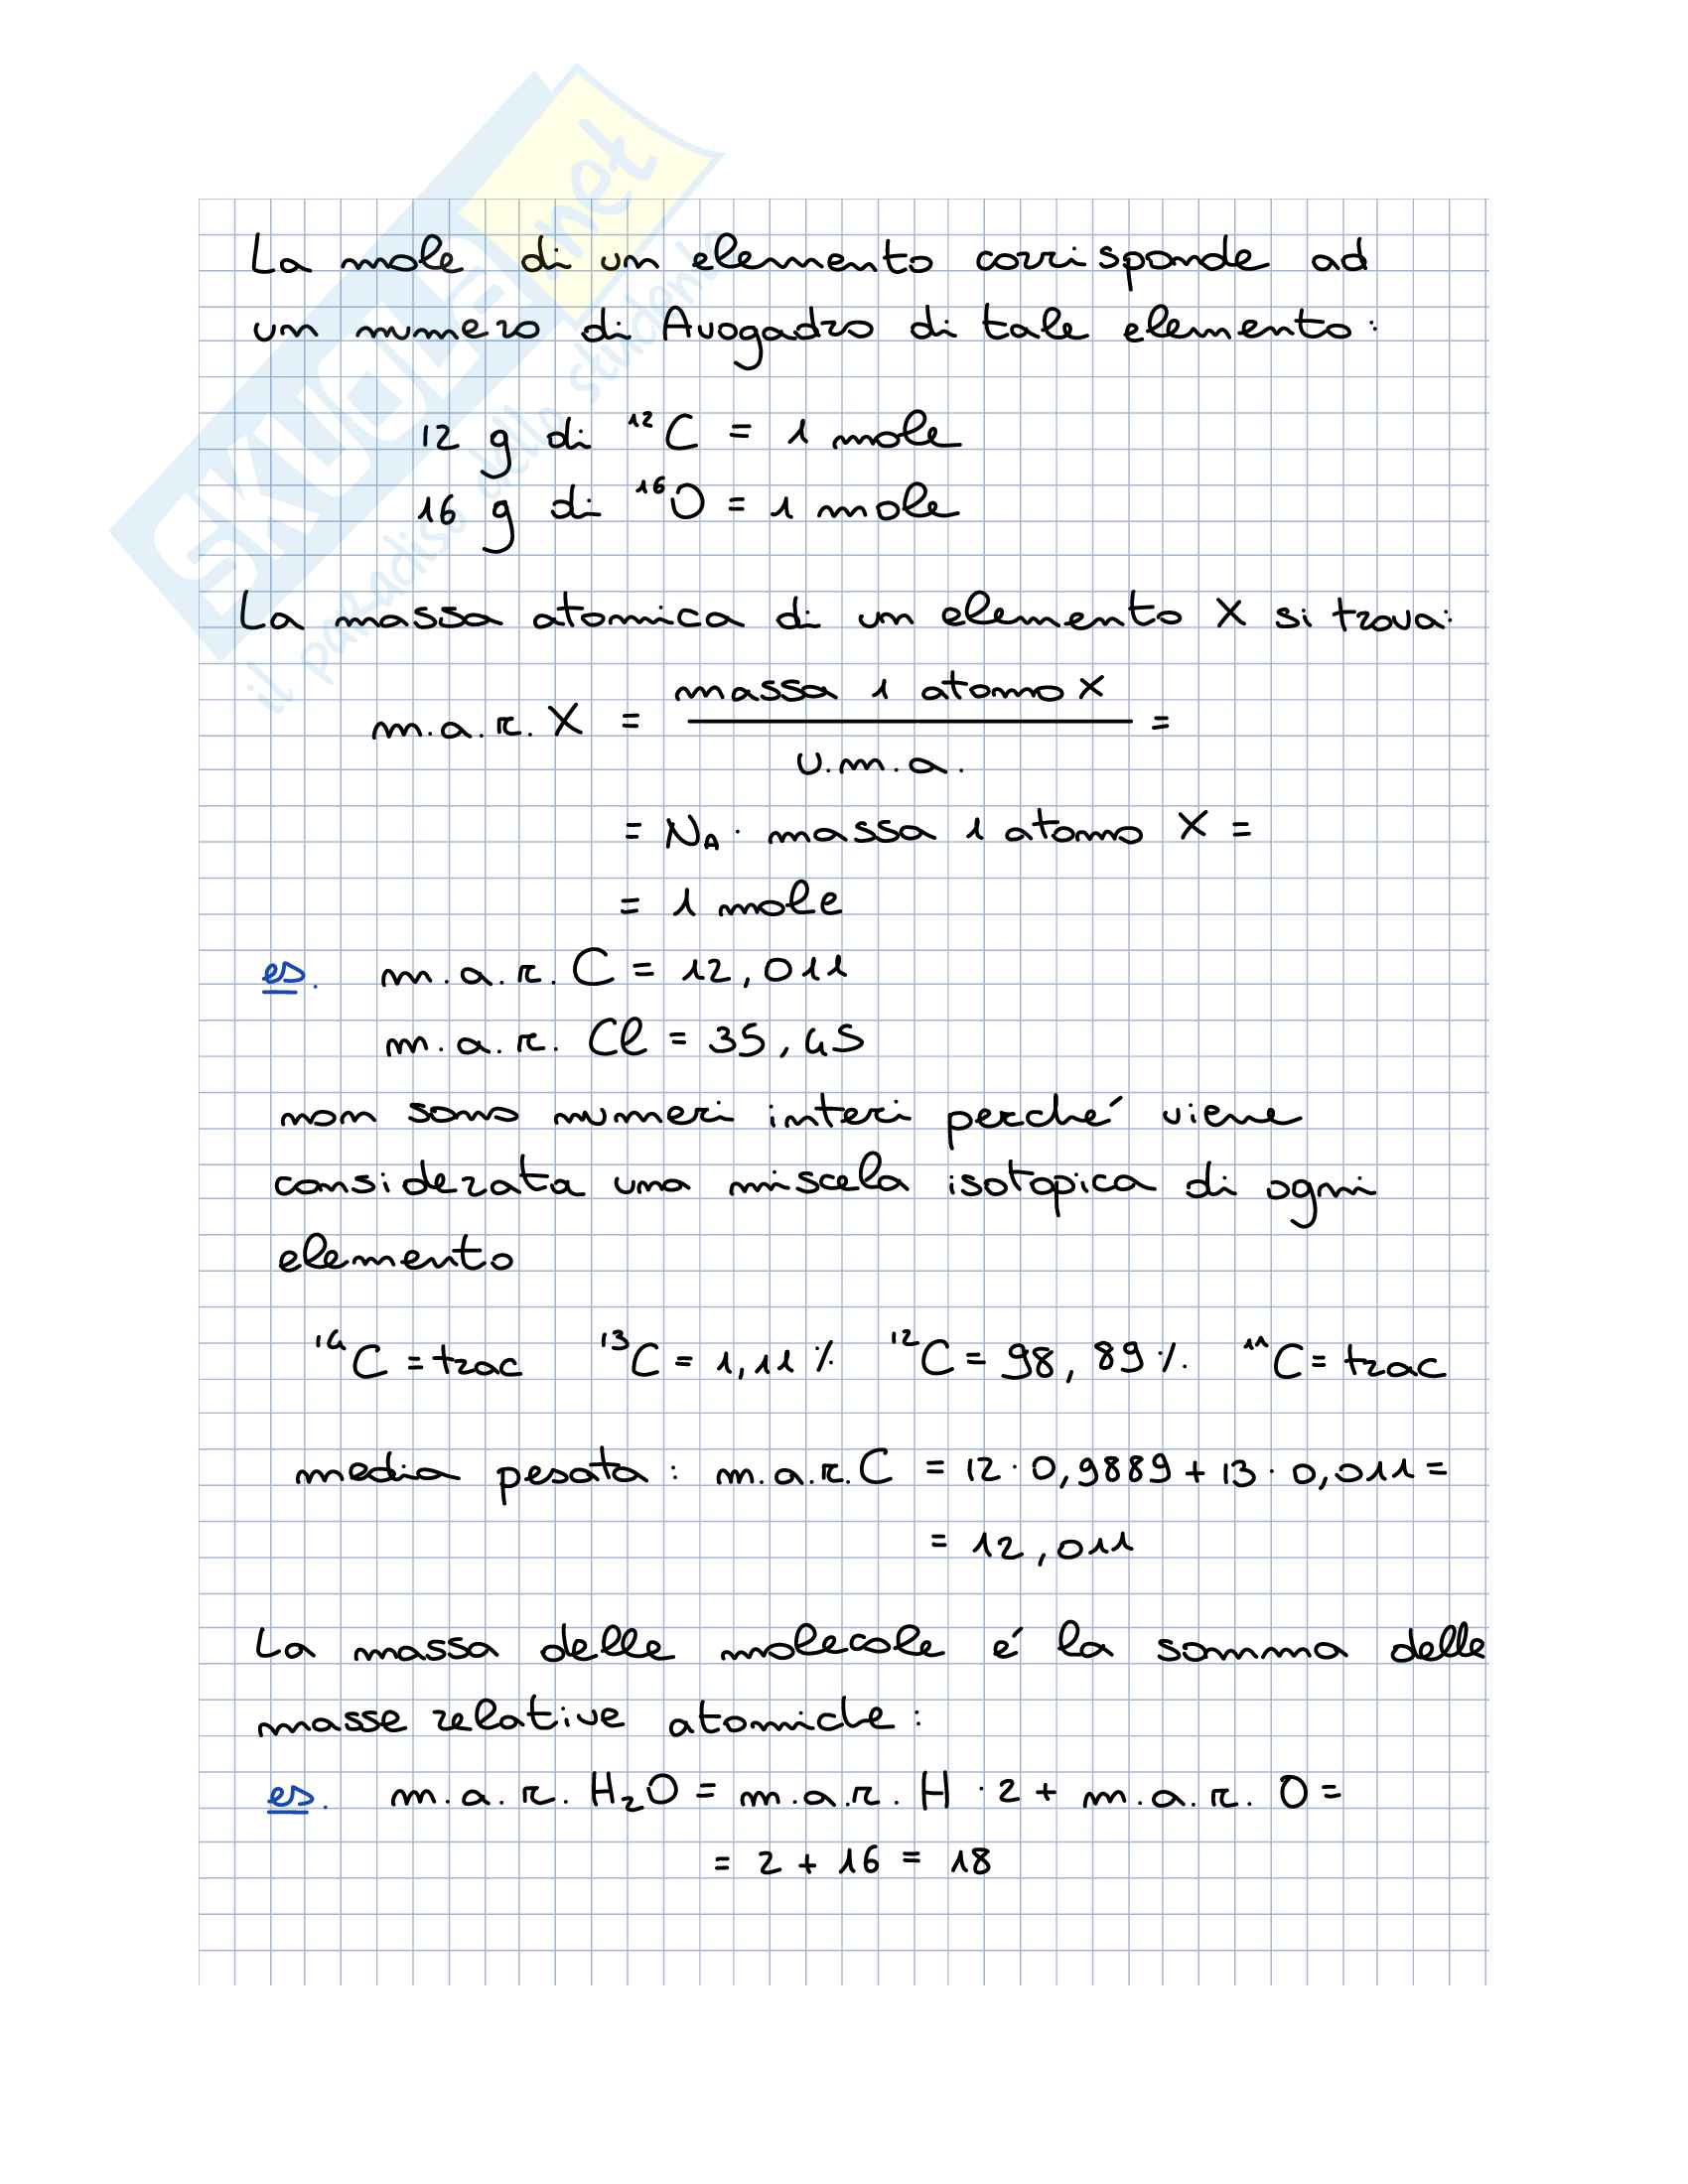 SKUOLA.net
il paradiso dello studente
La mole di un elemento corrisponde ad
un numero di Avogadro di tale elemento:
12 g di ¹²C = 1 mole
16 g di ¹⁶O = 1 mole
La massa atomica di un elemento X si trova:
massa 1 atomo X
m.a.r. X = ――― =
u.m.a.
= N_A · massa 1 atomo X =
= 1 mole
es. m.a.r. C = 12,011
m.a.r. Cl = 35,45
non sono numeri interi perché viene
considerata una miscela isotopica di ogni
elemento
¹⁴C = trac ¹³C = 1,11 % ¹²C = 98,89 % ¹¹C = trac
media pesata : m.a.r. C = 12 · 0,9889 + 13 · 0,011 =
= 12,011
La massa delle molecole é la somma delle
masse relative atomiche :
es. m.a.r. H₂O = m.a.r. H · 2 + m.a.r. O =
= 2 + 16 = 18